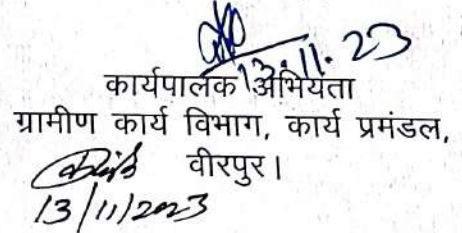 13.11.23
कार्यपालक अभियंता
ग्रामीण कार्य विभाग, कार्य प्रमंडल,
वीरपुर।
13/11/2023